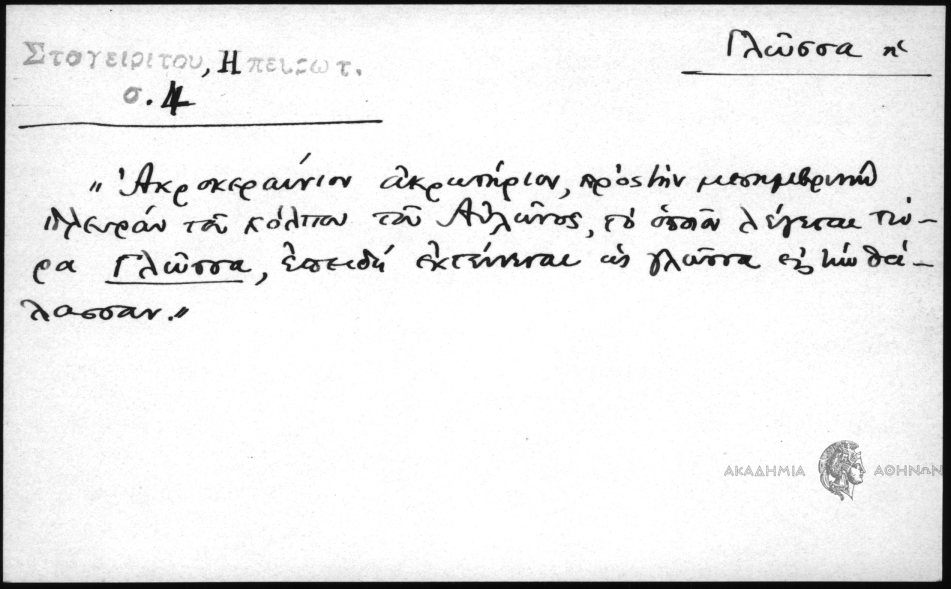 Σταγειρίτου, Ηπειρωτ.
σ. 4
Γλῶσσα ἡ
"Ἀκροκεραύνιον ἀκρωτήριον, πρὸς τὴν μεσημβρινὴν
πλευρὰν τοῦ κόλπου τοῦ Αὐλῶνος, τὸ ὁποῖον λέγεται τώ-
ρα Γλῶσσα, ἐπειδὴ ἐκτείνεται ὡς γλῶσσα εἰς τὴν θά-
λασσαν."
ΑΚΑΔΗΜΙΑ ΑΘΗΝΩΝ